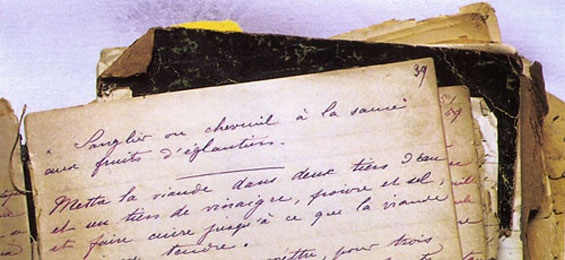 39
Sanglier ou chevreuil à la sauce
aux fruits d'églantiers.
Mettre la viande dans deux tiers d'eau
et un tiers de vinaigre, poivre et sel,
et faire cuire jusqu'à ce que la viande
tendre.
mettre, pour trois